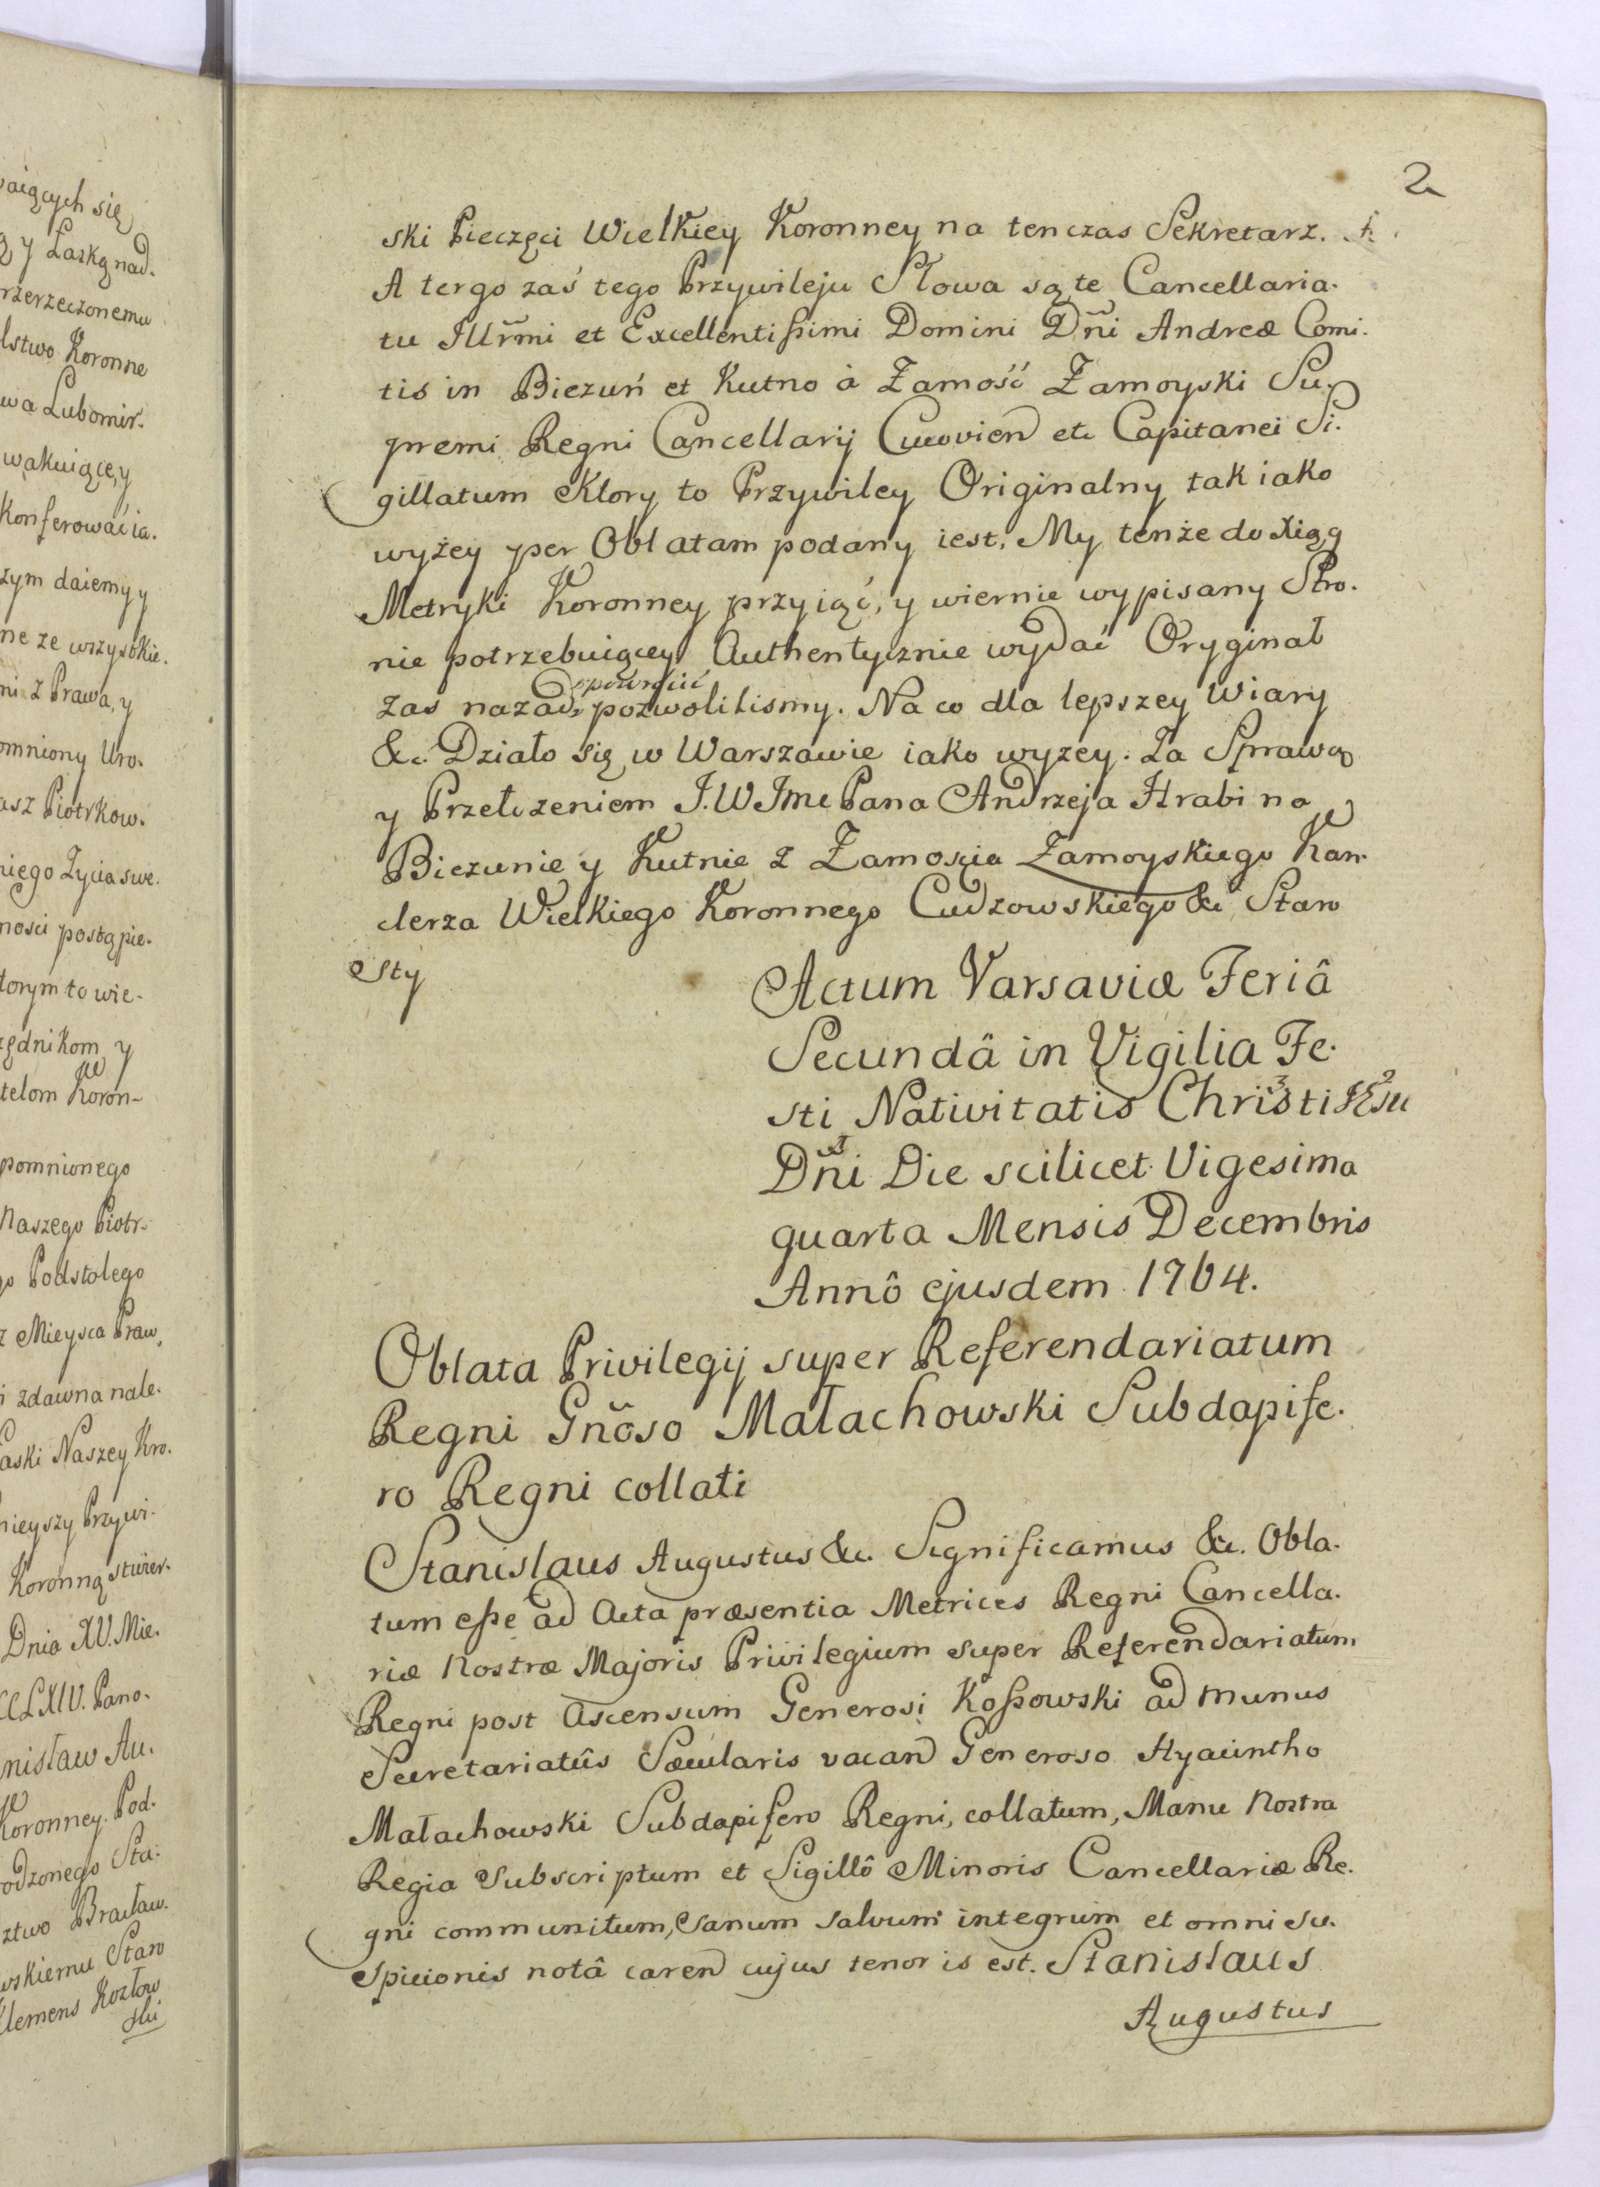 aiących się
ą y Laską nad.
rzerzeczonemu
lstwo Koronne
wa Lubomir.
wakuiące, y
Konferować ia.
szym daiemy y
ne ze wszystkie.
ni z Prawa, y
omniony Uro.
asz Piotrkow.
niego Zycia swe.
ności postąpie.
torym to wie-
zędnikom y
telom Koron-
pomnionego
Naszego Piotr-
go Podstolego
z Mieysca Praw,
i zdawna nale.
Łaski Naszey Kro.
nieyszy Przywi.
Koronną stwier.
Dnia XV. Mie.
CCLXIV. Pano.
nisław Au.
Koronney. Pod.
odzonego Sta.
ztwo Bracław.
wskiemu Staro
Klemens Kozłow
ski
2
ski Pieczęci Wielkiey Koronney na ten czas Sekretarz. A
A tergo zaś tego Przywileju Słowa są te Cancellaria.
tu Illr̃mi et Excellentissimi Domini Dñi Andreæ Comi.
tis in Biezuń et Kutno à Zamość Zamoyski Su.
premi Regni Cancellarij Cucovien etc Capitanei Si.
gillatum Ktory to Przywiley Originalny tak iako
wyżey per Oblatam podany iest, My tenże do Xiąg
Metryki Koronney przyiąć, y wiernie wypisany Stro.
nie potrzebuiącey Authentycznie wydać Oryginał
zas nazad powrócić pozwolilismy. Na co dla lepszey Wiary
&c. Działo się w Warszawie iako wyzey. Za Sprawą
y Przełożeniem J. W Jmc Pana Andrzeja Hrabi na
Biezunie y Kutnie z Zamoscia Zamoyskiego Kan-
clerza Wielkiego Koronnego Cudzowskiego &c Staro
sty
Actum Varsaviæ Feriâ
Secundâ in Vigilia Fe.
sti Nativitatis Christi 3 Jesu 2
Dñi 1 Die scilicet Vigesima
quarta Mensis Decembris
Annô ejusdem 1764.
Oblata Privilegij super Referendariatum
Regni Gñoso Małachowski Subdapife.
ro Regni collati
Stanislaus Augustus &c. Significamus &c. Obla.
tum esse ad Acta præsentia Metrices Regni Cancella.
riæ Nostræ Majoris Privilegium super Referendariatum
Regni post Ascensum Generosi Kossowski ad munus
Secretariatûs Sæcularis vacan Generoso Hyacintho
Małachowski Subdapifero Regni, collatum, Manu Nostra
Regia Subscriptum et Sigillô Minoris Cancellariæ Re.
gni communitum, Sanum salvum integrum et omni su.
spicionis notâ caren cujus tenor is est. Stanislaus
Augustus